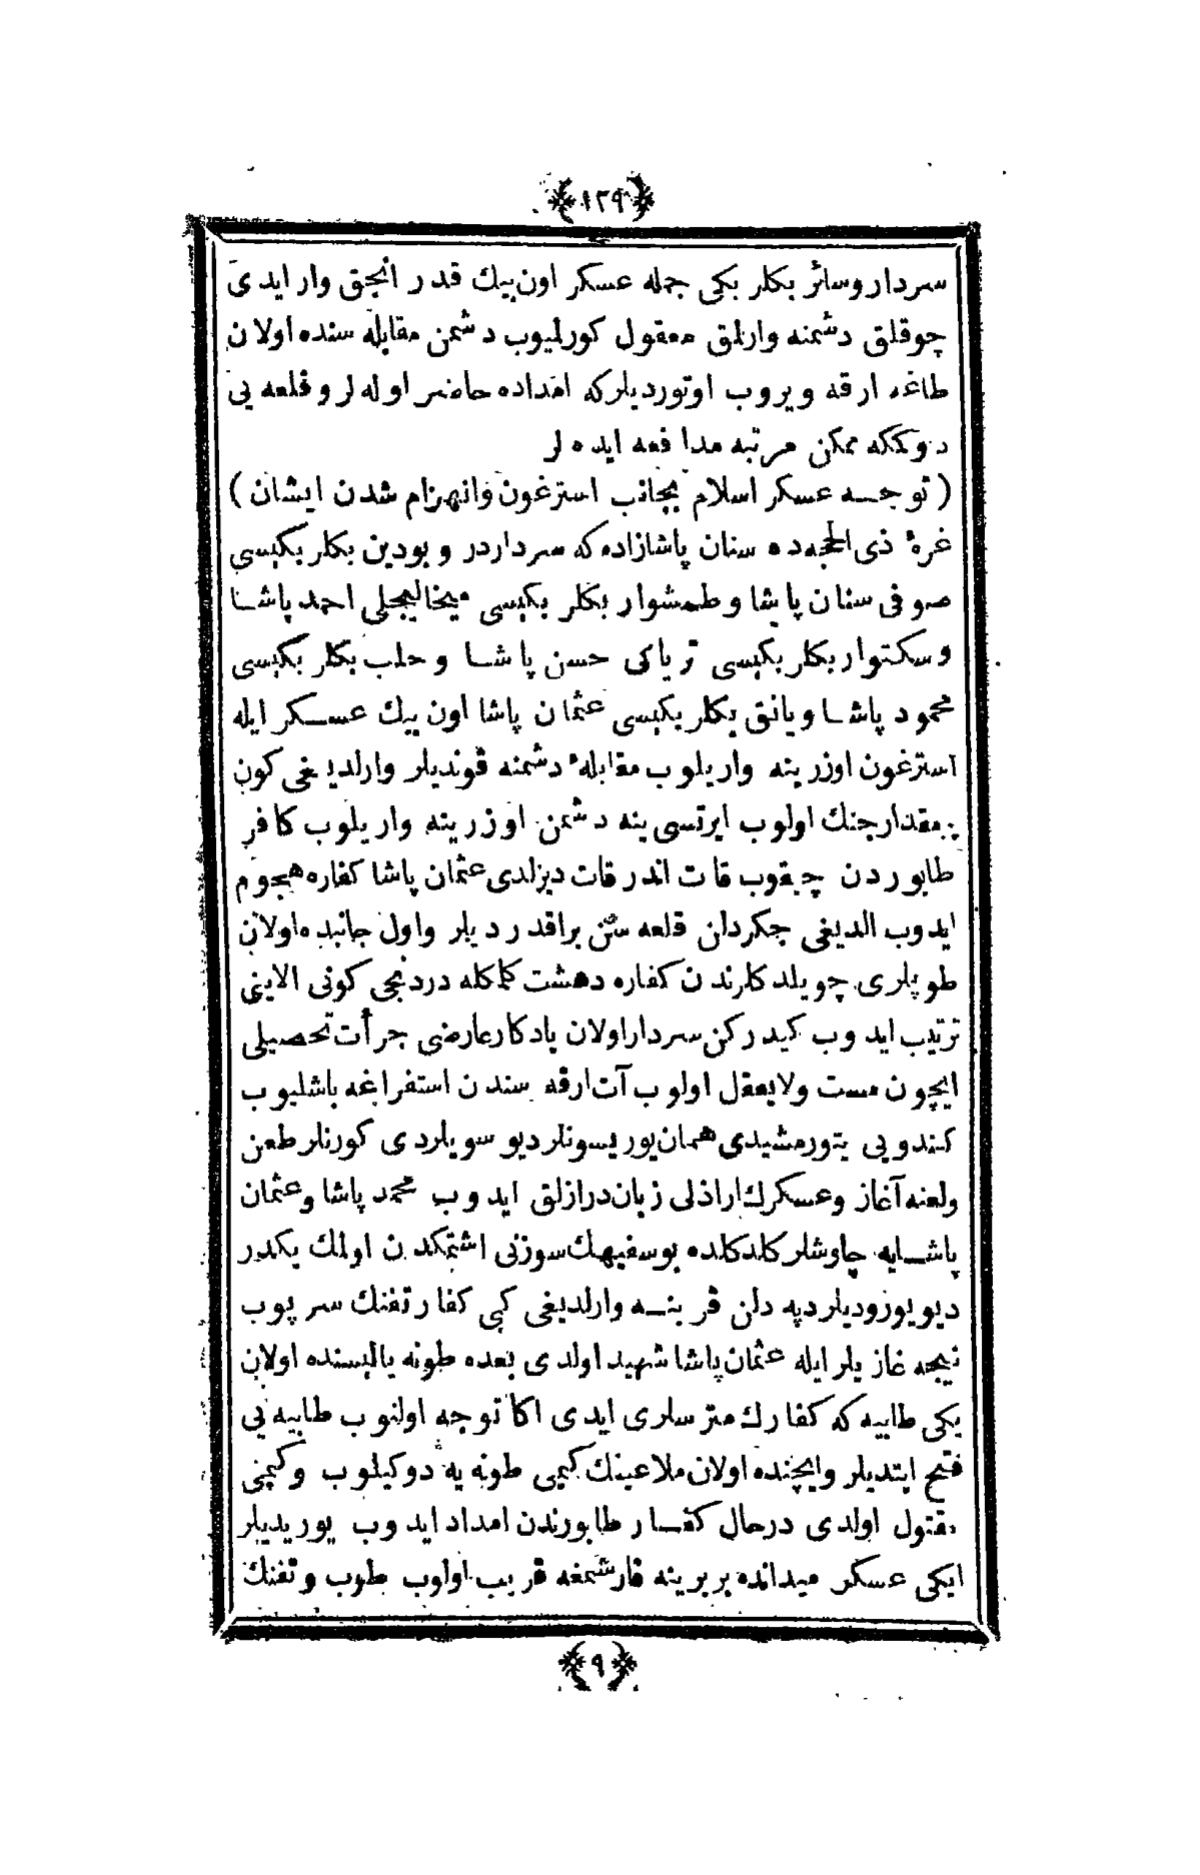 ﴿١٢٩﴾
سردار وسائر بكلر بكى جمله عسكر اون بيك قدر انجق وار ايدى
چوقلق دشمنه وارلمق معقول كورلميوب دشمن مقابله سنده اولان
طاغه ارقه ويروب اوتورديلر كه امداده حاضر اوله لر وقلعه يى
دوكمكه ممكن مرتبه مدافعه ايده لر
(توجه عسكر اسلام بجانب استرغون وانهزام شدن ايشان)
غرۀ ذى الحجه ده سنان پاشازاده كه سرداردر وبودين بكلر بكيسى
صوفى سنان پاشا وطمشوار بكلر بكيسى ميخاليجلى احمد پاشا
وسكتوار بكلر بكيسى ترياكى حسن پاشا وحلب بكلر بكيسى
محمود پاشا ويانق بكلر بكيسى عثمان پاشا اون بيك عسكر ايله
استرغون اوزرينه واريلوب مقابلۀ دشمنه قونديلر وارلديغى كون
بر مقدار جنك اولوب ايرتسى ينه دشمن اوزرينه واريلوب كافر
طابوردن چيقوب قات اندر قات ديزلدى عثمان پاشا كفاره هجوم
ايدوب الديغى جكردان قلعه سن براقدرديلر واول جانبده اولان
طوپلرى چويلدكلرندن كفاره دهشت كلمكله دردنجى كونى الاينى
ترتيب ايدوب كيدركن سردار اولان يادكار عارضى جرأت تحصيلى
ايچون مست ولايعقل اولوب آت ارقه سندن استفراغه باشليوب
كندويى يتورمشيدى همان يوريسونلر ديو سويلردى كورنلر طعن
ولعنه آغاز وعسكرك اراذلى زبان درازلق ايدوب محمد پاشا وعثمان
پاشايه چاوشلر كلدكلده بوسفيهك سوزنى اشتمكدن اولمك يكدر
ديو يوروديلر دپه دلن قربنه وارلديغى كبى كفار تفنك سرپوب
نيجه غازيلر ايله عثمان پاشا شهيد اولدى بعده طونه ياليسنده اولان
يكى طابيه كه كفارك مترسلرى ايدى اكا توجه اولنوب طابيه يى
فتح ايتديلر وايچنده اولان ملاعينك كيمى طونه يه دوكيلوب وكيمنى
مقتول اولدى درحال كفار طابورندن امداد ايدوب يوريديلر
ايكى عسكر ميدانده بربرينه قارشمغه قريب اولوب طوب وتفنك
﴿٩﴾